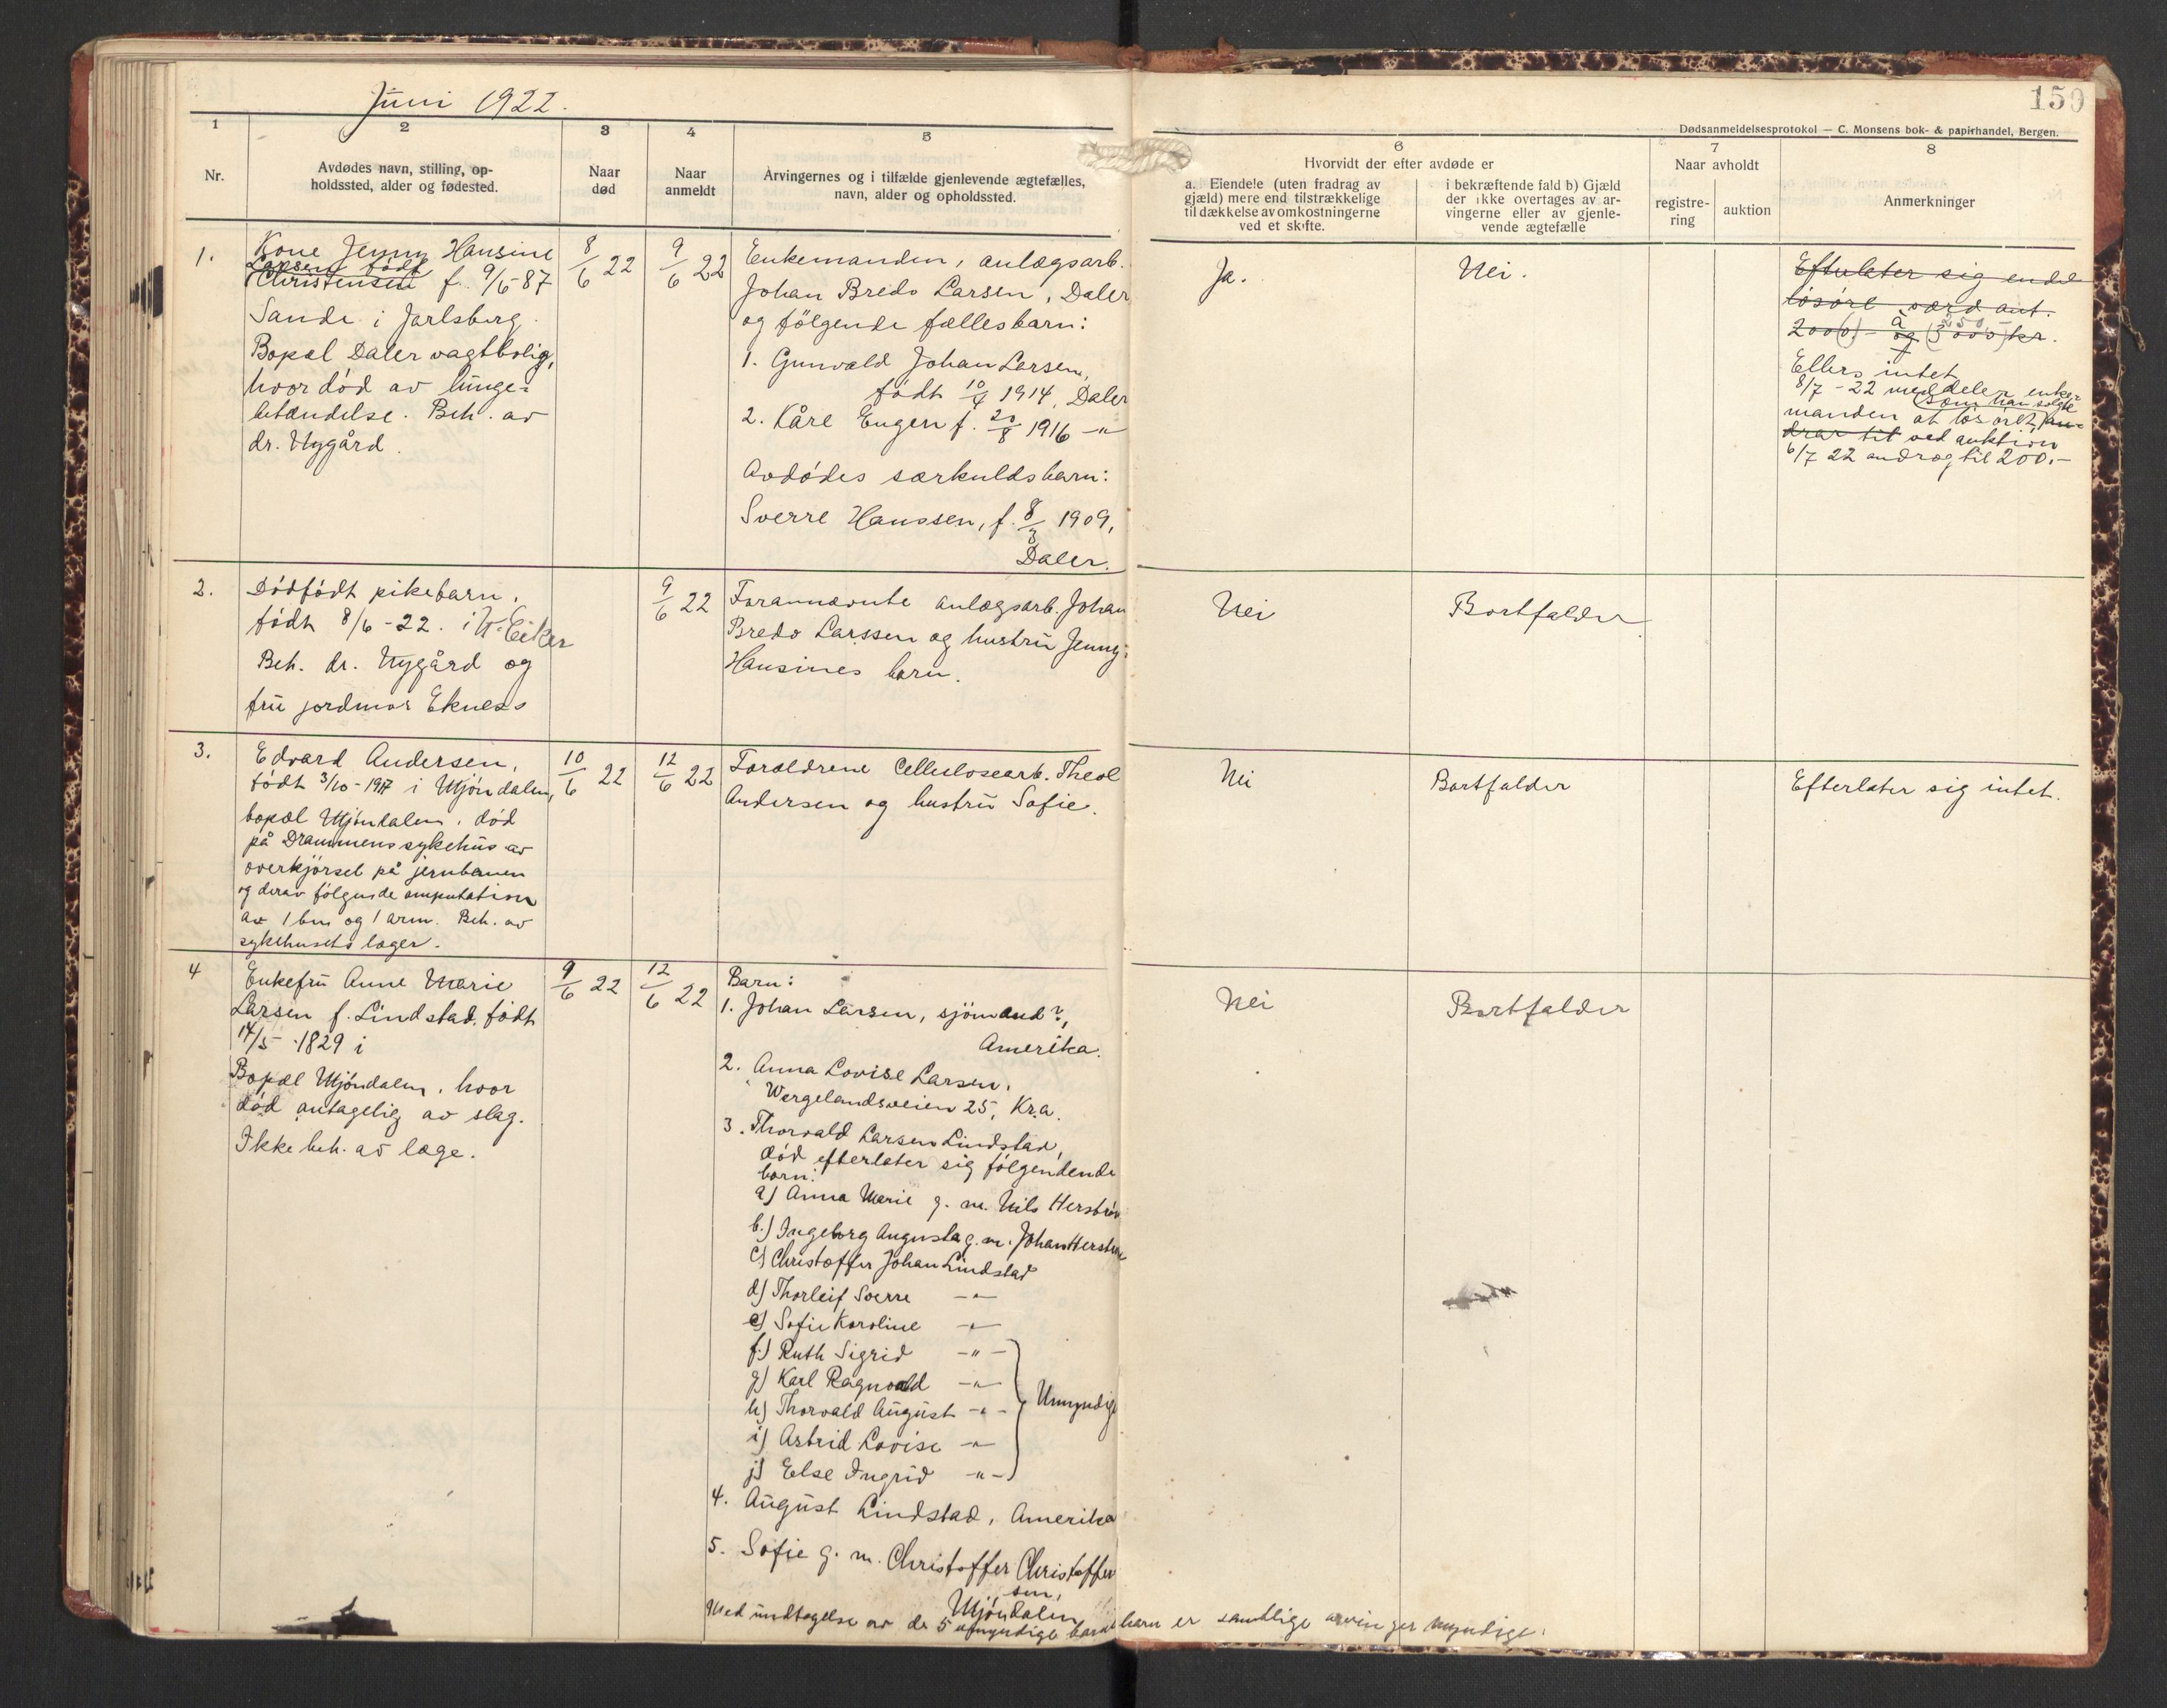 Juni 1922.
150
Dødsanmeldelsesprotokol — C. Monsens bok- & papirhandel, Bergen.
1
2
3
4
5
6
7
8
Nr.
Avdødes navn, stilling, op-
holdssted, alder og fødested.
Naar
død
Naar
anmeldt
Arvingernes og i tilfælde gjenlevende ægtefælles,
navn, alder og opholdssted.
Hvorvidt der efter avdøde er
a. Eiendele (uten fradrag av
gjæld) mere end tilstrækkelige
til dækkelse av omkostningerne
ved et skifte.
i bekræftende fald b) Gjæld
der ikke overtages av ar-
vingerne eller av gjenle-
vende ægtefælle
Naar avholdt
registre-
ring
auktion
Anmerkninger
1.
Kone Jenny Hansine
Larsen født
Christensen f. 9/5-87
Sande i Jarlsberg.
Bopæl Daler vagtbolig,
hvor død av lunge-
betændelse. Beh. av
dr. Nygård.
8/6 22
9/6 22
Enkemanden, anlægsarb.
Johan Bredo Larsen, Daler
og følgende fællesbarn:
1. Gunvald Johan Larsen,
født 10/4 1914, Daler
2. Kåre Eugen f. 20/8 1916 -"-
Avdødes særkuldsbarn:
Sverre Hanssen, f. 8/3 1909,
Daler.
Ja.
Nei.
Efterlater sig endel
løsøre værd ant.
200(0).- å og (3000) kr.
250.-
Ellers intet
8/7-22 meddeler enke-
som han solgte
manden at løsøret, an-
drar til ved auktion
6/7 22 androg til 200.-
2.
Dødfødt pikebarn,
født 8/6-22. i N. Eiker
Beh. dr. Nygård og
fru jordmor Ekness
9/6 22
Forannævnte anlægsarb. Johan
Bredo Larssen og hustru Jenny
Hansines barn.
Nei
Bortfalder
3.
Edvard Andersen,
født 3/10-1917 i Mjøndalen,
bopæl Mjøndalen, død
på Drammens sykehus av
overkjørsel på jernbanen
og derav følgende amputation
av 1 ben og 1 arm. Beh. av
sykehusets læger.
10/6 22
12/6 22
Forældrene Cellulosearb. Theol
Andersen og hustru Sofie.
Nei
Bortfalder
Efterlater sig intet.
4
Enkefru Anne Marie
Larsen f. Lindstad, født
14/5-1829 i
Bopæl Mjøndalen, hvor
død antagelig av slag.
Ikke beh. av læge.
9/6 22
12/6 22
Barn:
1. Johan Larsen, sjømand?,
Amerika.
2. Anna Lovise Larsen,
Wergelandsveien 25, Kr.a.
3. Thorvald Larsen Lindstad,
død efterlater sig følgendende
barn:
a) Anna Marie g. m. Nils Herstrøm
b.) Ingeborg Augusta g. m. Johan Herstrøm
c) Christoffer Johan Lindstad
d) Thorleif Sverre -"-
e) Sofie Karoline -"-
f.) Ruth Sigrid -"-
g) Karl Ragnvald -"-
h) Thorvald August -"-
i) Astrid Lovise -"-
j) Else Ingrid -"-
Umyndige
4. August Lindstad, Amerika
5. Sofie g. m. Christoffer Christoffer
sen,
Mjøndalen
Med undtagelse av de 5 umyndige barnebarn er samtlige arvinger myndige.
Nei
Bortfalder